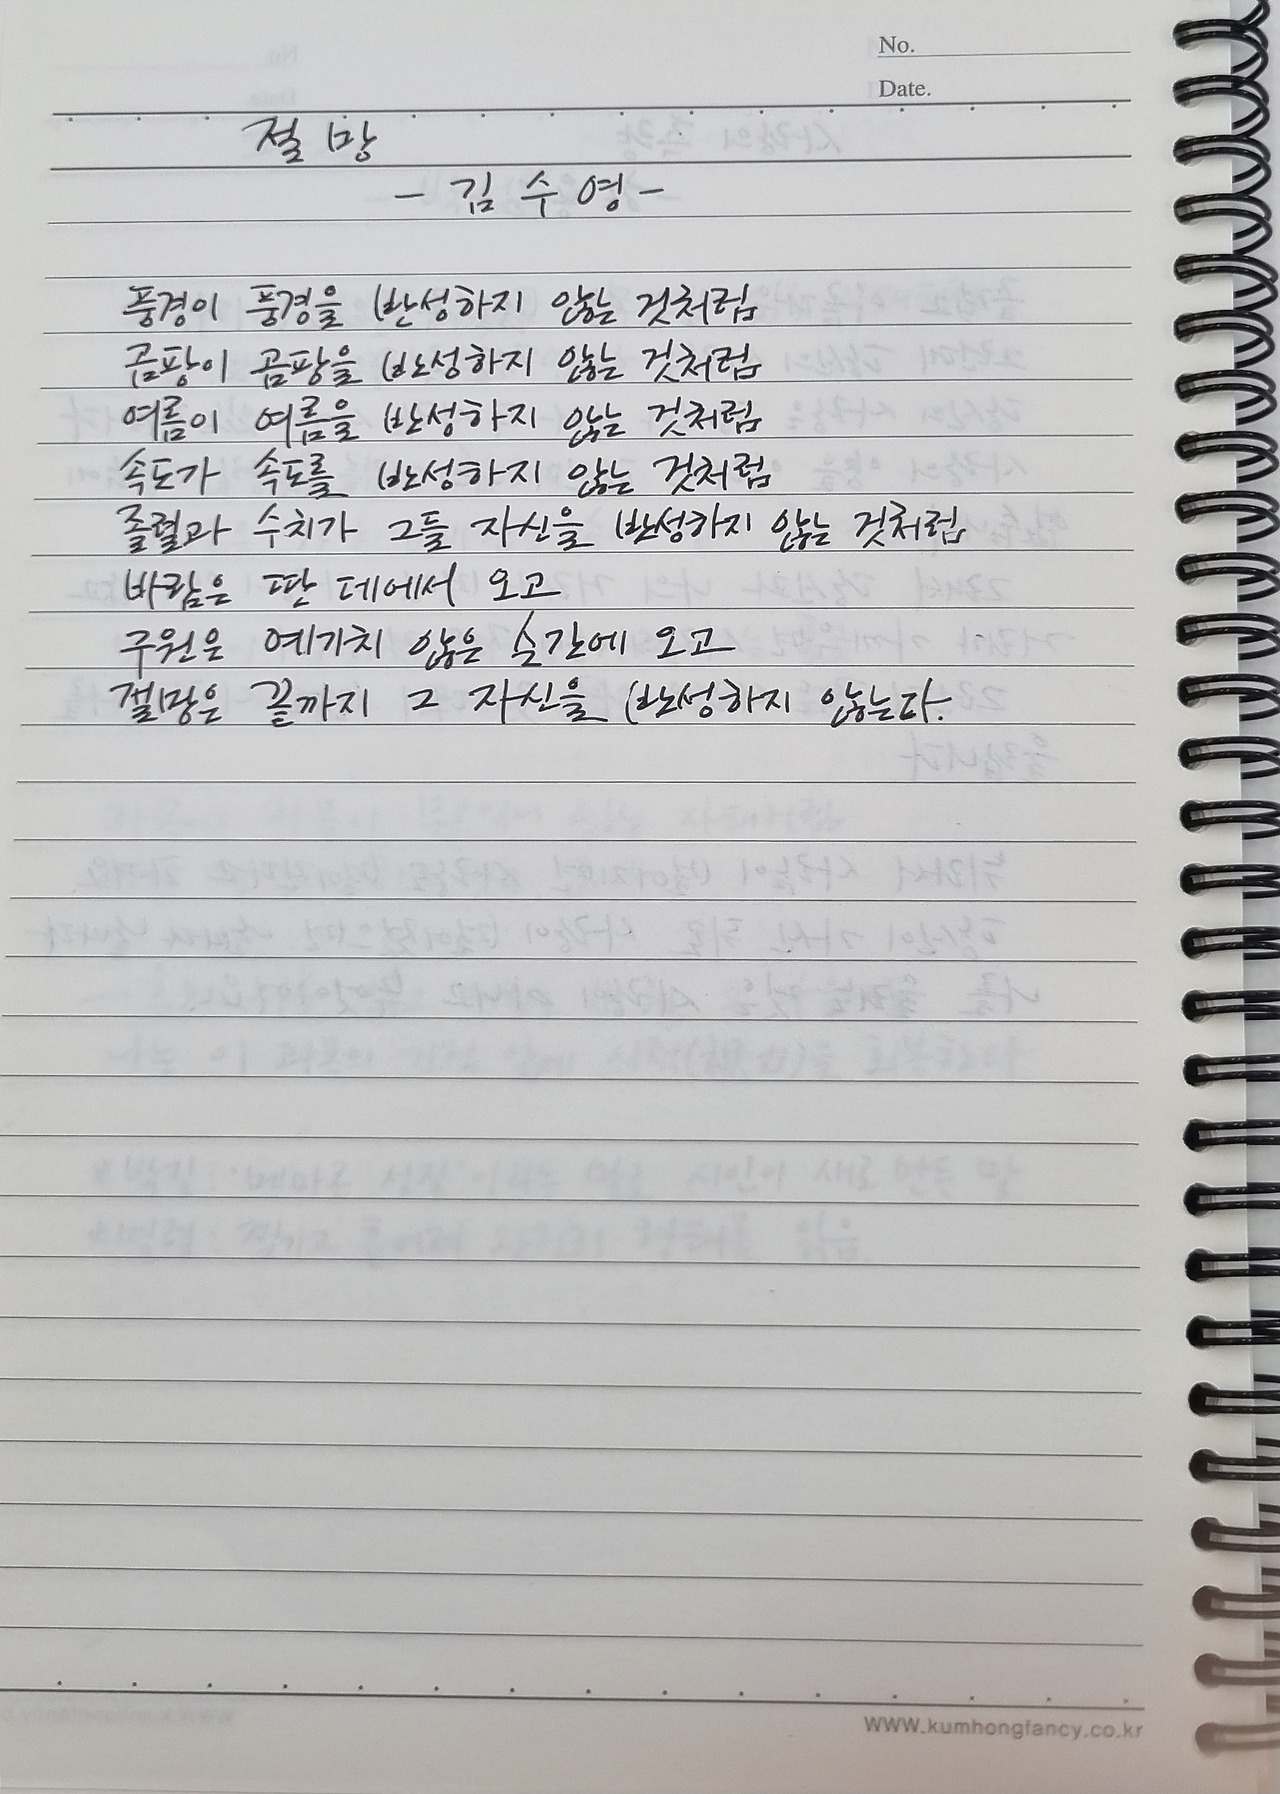 No.
Date.
절망
- 김수영 -
풍경이 풍경을 반성하지 않는 것처럼
곰팡이 곰팡을 반성하지 않는 것처럼
여름이 여름을 반성하지 않는 것처럼
속도가 속도를 반성하지 않는 것처럼
졸렬과 수치가 그들 자신을 반성하지 않는 것처럼
바람은 딴 데에서 오고
구원은 예기치 않은 순간에 오고
절망은 끝까지 그 자신을 반성하지 않는다.
www.kumhongfancy.co.kr